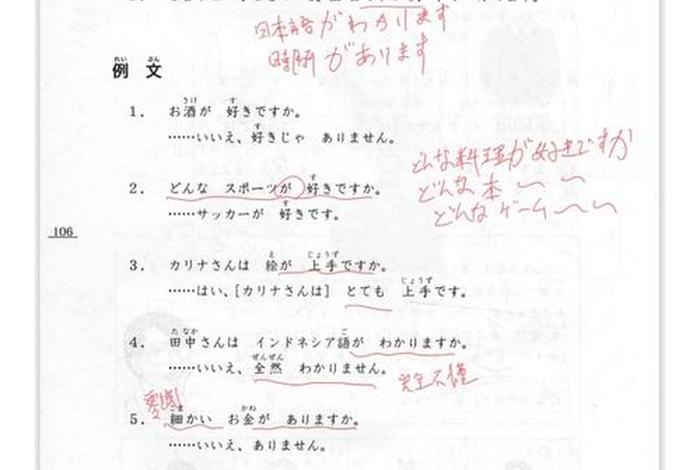 日本語がわかります
時間があります
例文
1. お酒が 好きですか。
……いいえ、好きじゃ ありません。
どんな料理が好きですか
2. どんな スポーツが 好きですか。
どんな 本 〜 〜
……サッカーが 好きです。
どんな ゲーム 〜 〜
106
3. カリナさんは 絵が 上手ですか。
……はい、[カリナさんは] とても 上手です。
4. 田中さんは インドネシア語が わかりますか。
……いいえ、全然 わかりません。
完全不懂
5. 細かい お金が ありますか。
……いいえ、ありません。